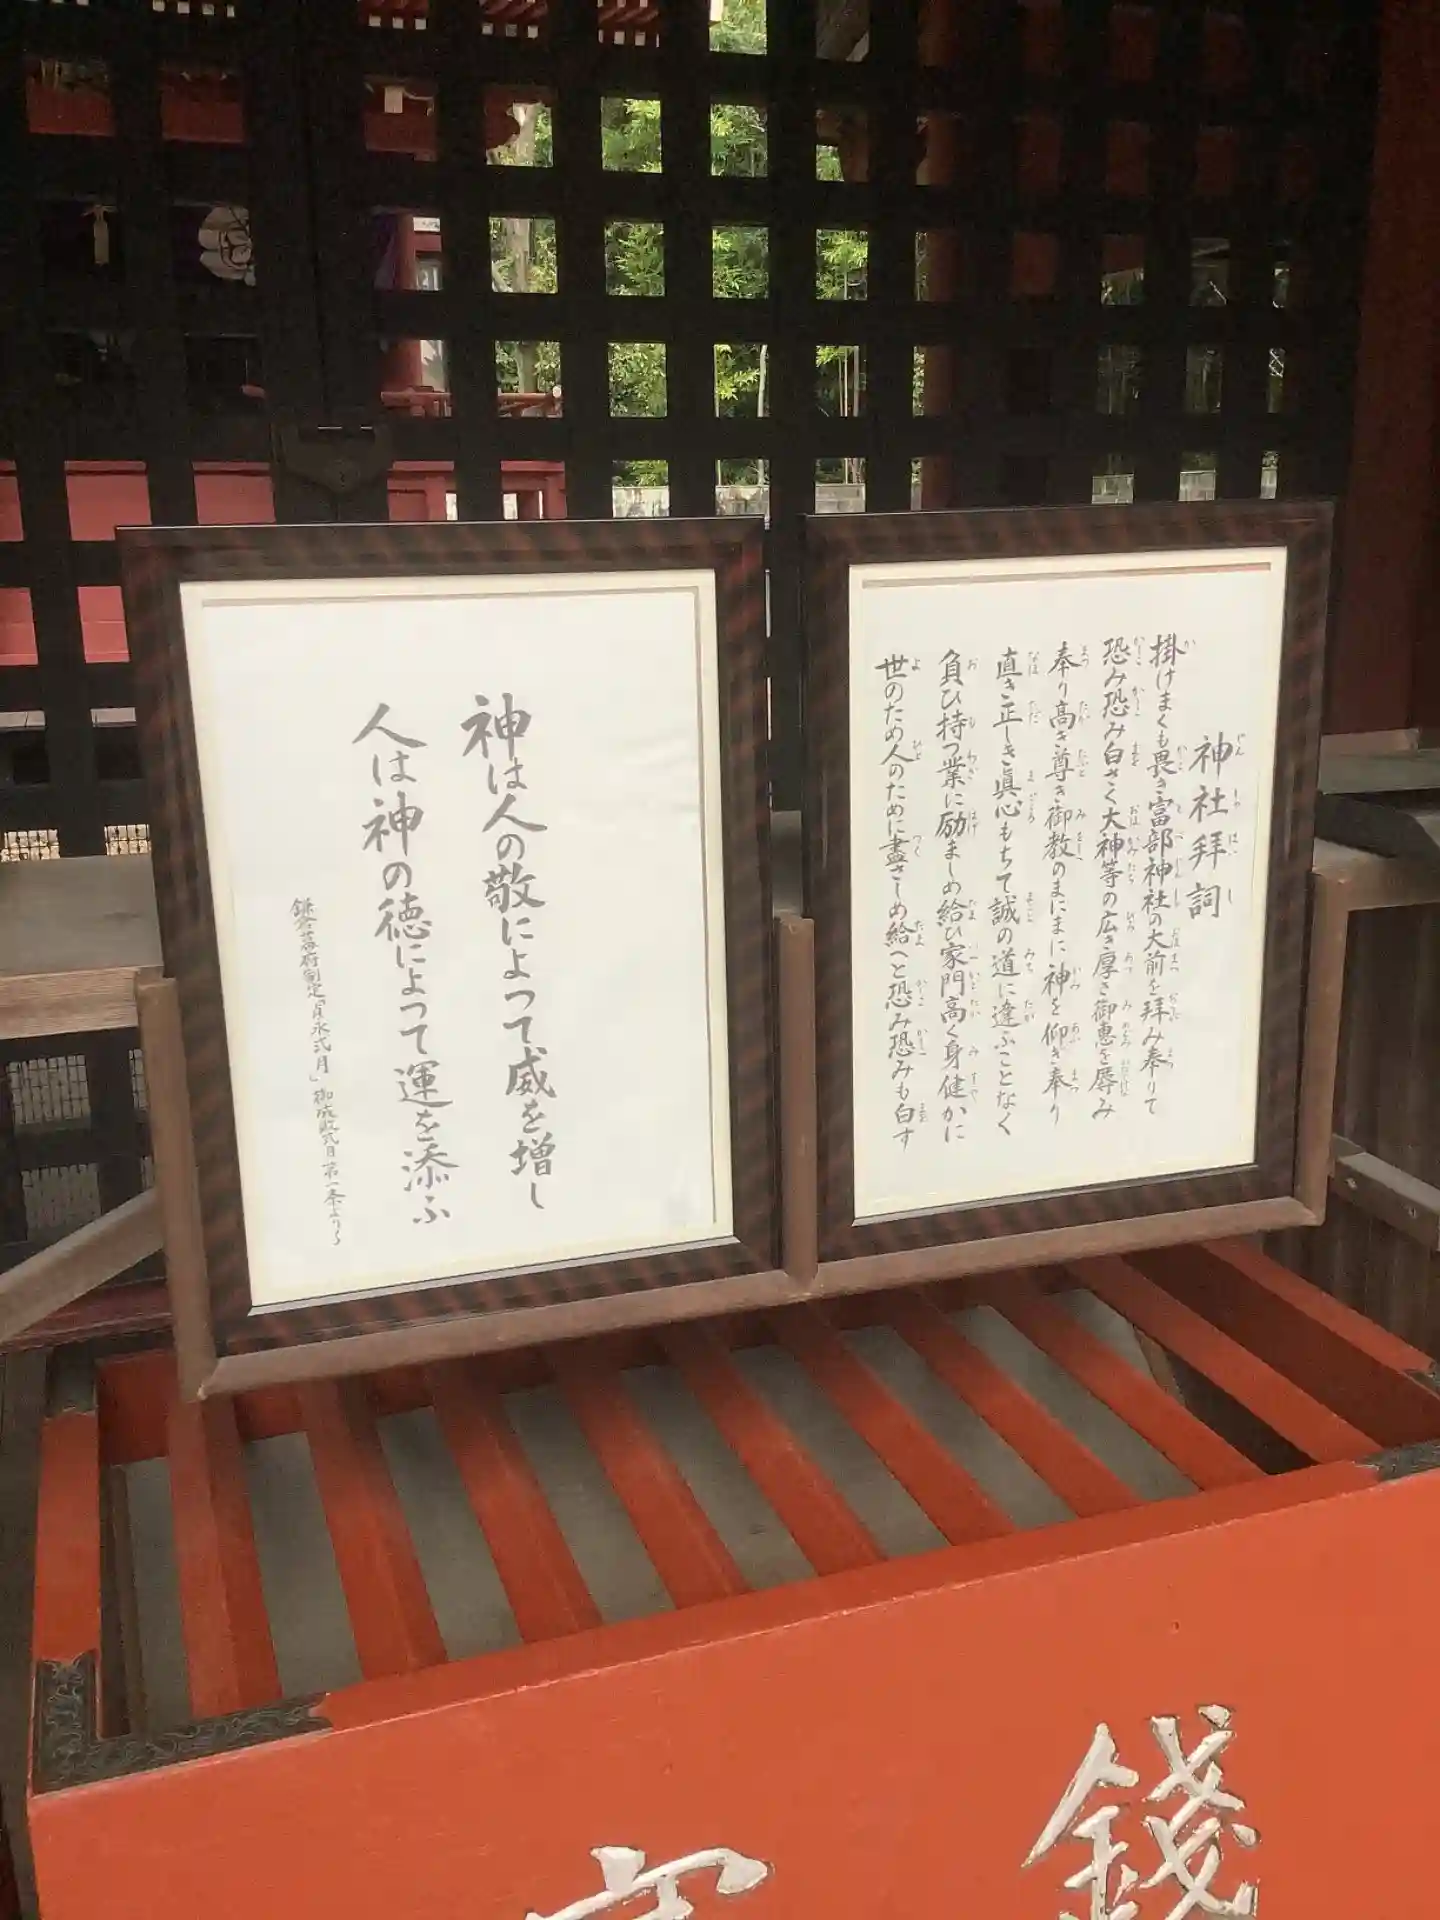 神社拝詞
掛けまくも畏き富部神社の大前を拝み奉りて
恐み恐み白さく大神等の広き厚き御恵を辱み
奉り高き尊き御教のまにまに神を仰ぎ奉り
直き正しき眞心もちて誠の道に違ふことなく
負ひ持つ業に励ましめ給ひ家門高く身健かに
世のため人のために盡さしめ給へと恐み恐みも白す
神は人の敬によって威を増し
人は神の徳によって運を添ふ
鎌倉幕府制定
御成敗式目第一条より
錢